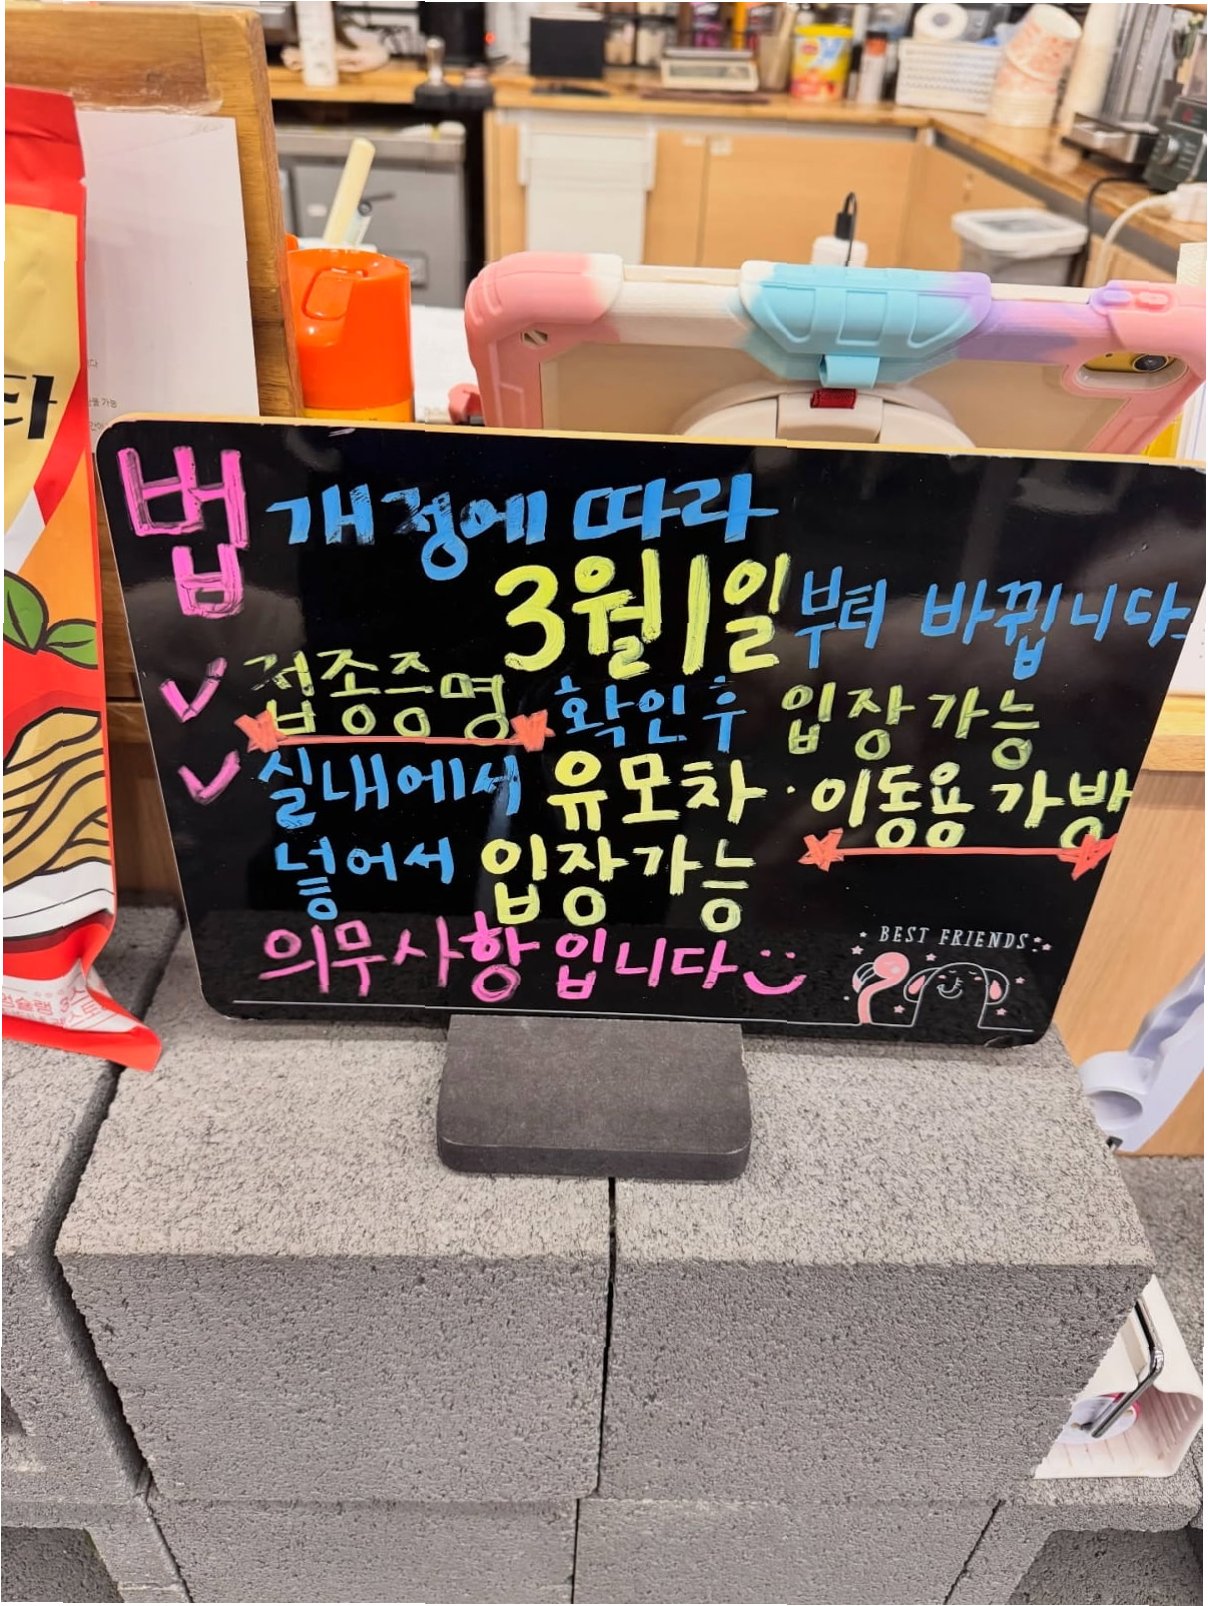 타
법 개정에 따라
3월 1일부터 바뀝니다.
✓ 접종증명 확인 후 입장 가능
✓ 실내에서 유모차·이동용 가방
넣어서 입장 가능
의무사항 입니다
BEST FRIENDS